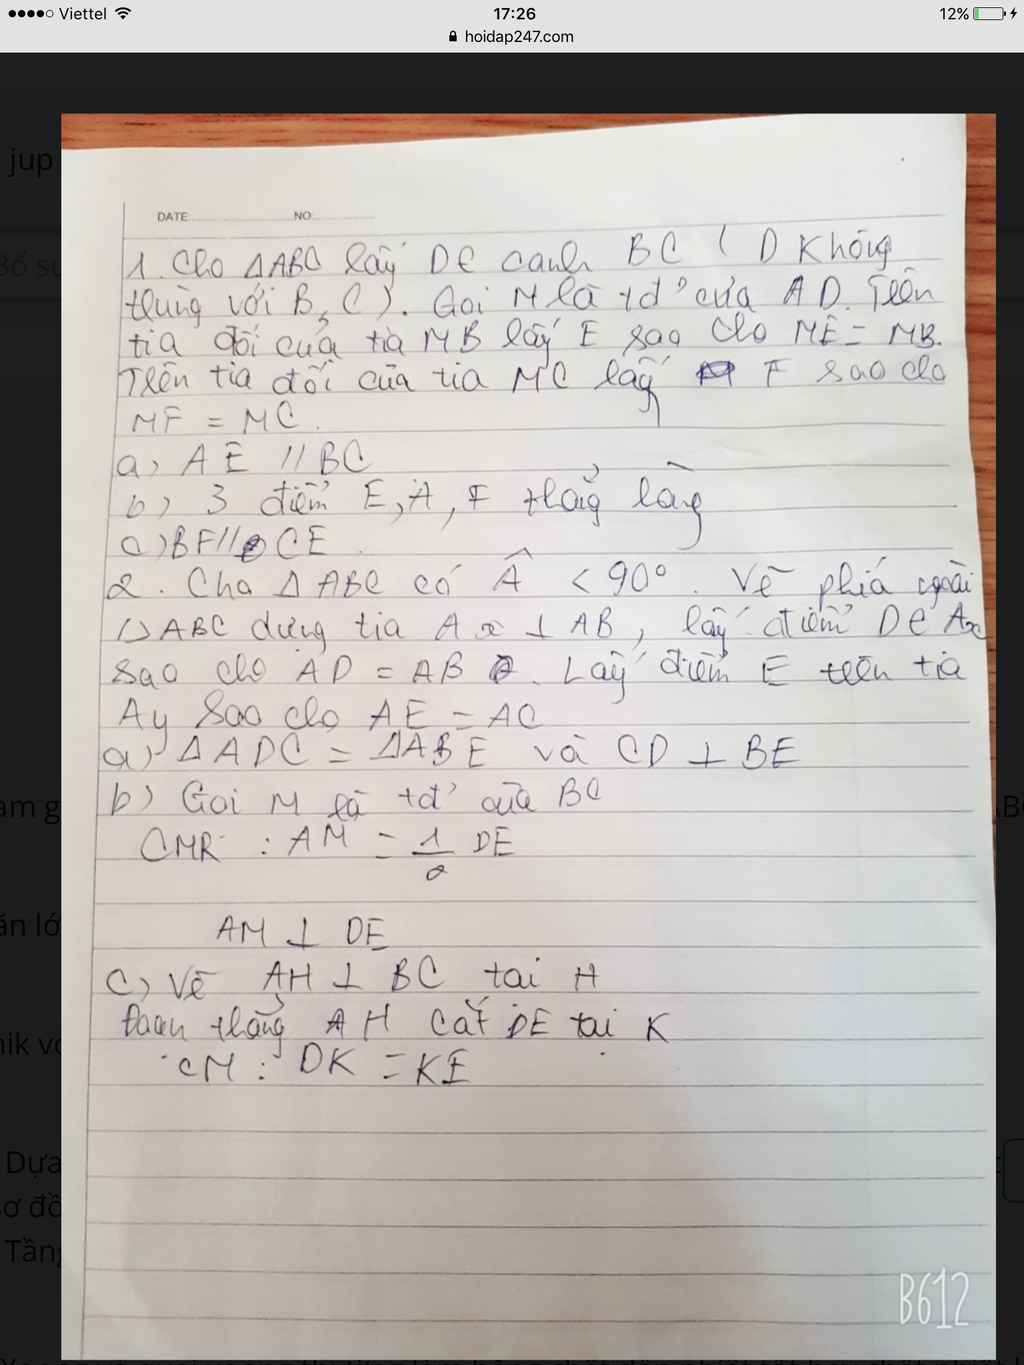 Viettel 17:26 12%
hoidap247.com
jup
Bổ su
DATE NO
1. Cho ΔABC lấy D∈ cạnh BC ( D không
trùng với B, C ). Gọi M là tđ' của AD. Trên
tia đối của tia MB lấy E sao cho ME = MB.
Trên tia đối của tia MC lấy F sao cho
MF = MC.
a) AE // BC
b) 3 điểm E, A, F thẳg hàng
c) BF // CE.
2. Cho Δ ABC có Â < 90°. Vẽ phiá ngoài
ΔABC dựng tia Ax ⊥ AB, lấy điểm D∈ Ax
sao cho AD = AB. Lấy điểm E trên tia
Ay sao cho AE = AC
a) ΔADC = ΔABE và CD ⊥ BE
b) Gọi M là tđ' của BC
CMR : AM = 1/2 DE
AM ⊥ DE
c) Vẽ AH ⊥ BC tại H
Đoạn thẳng AH cắt DE tại K
CM : DK = KE
am g
ăn lớ
nik vo
Dựa
ơ đồ
Tầng
B612